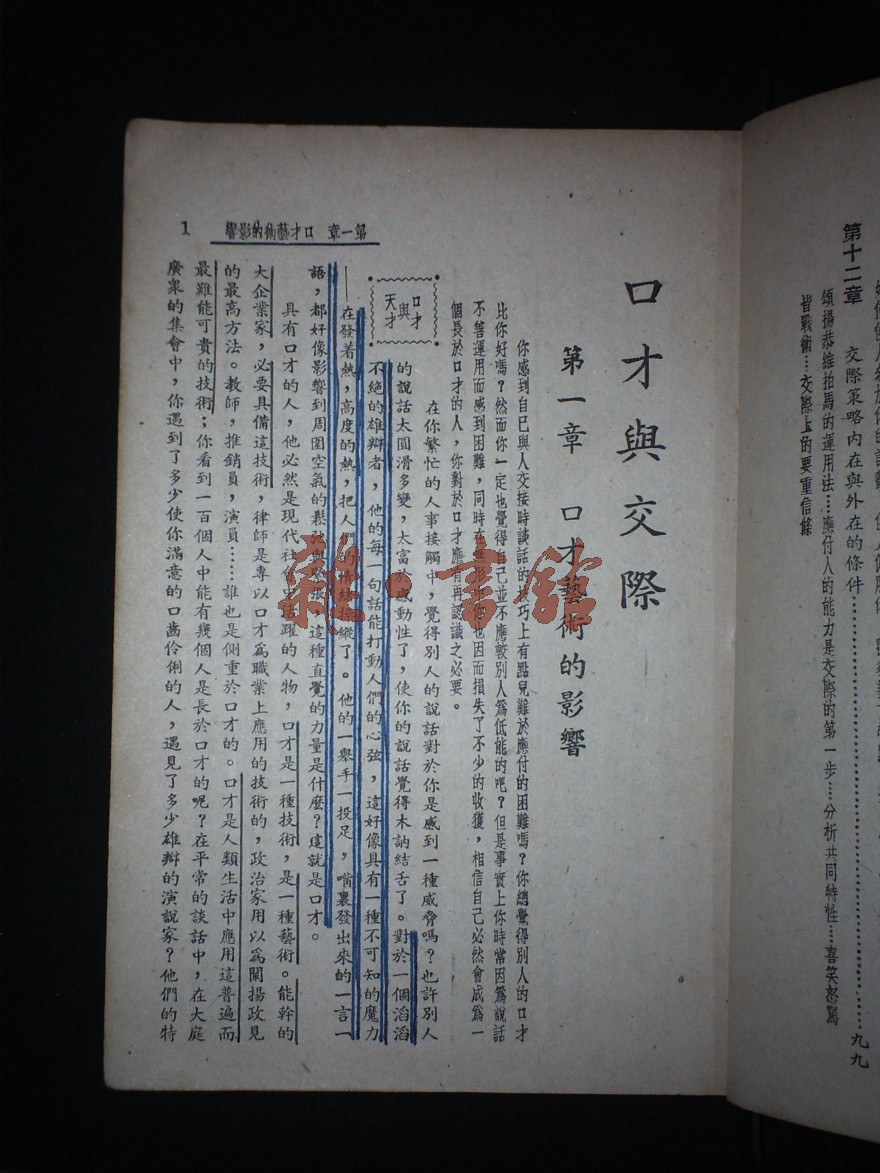 第十二章 交際策略內在與外在的條件……………………………………九九
頌揚恭維拍馬的運用法…應付人的能力是交際的第一步…分析共同特性…喜笑怒罵
皆戰術…交際上的要重信條
口才與交際
第一章 口才藝術的影響
你感到自己與人交接時談話的技巧上有點兒難於應付的困難嗎？你總覺得別人的口才
比你好嗎？然而你一定也覺得自己並不應較別人爲低能的吧？但是事實上你時常因爲說話
不善運用而感到困難，同時在無形中你也因而損失了不少的收獲，相信自己必然會成爲一
個長於口才的人，你對於口才應有再認識之必要。
口才
與
天才
在你繁忙的人事接觸中，覺得別人的說話對於你是感到一種威脅嗎？也許別人
的說話太圓滑多變，太富於感動性了，使你的說話覺得木訥結舌了。對於一個滔滔
不絕的雄辯者，他的每一句話能打動人們的心弦，這好像具有一種不可知的魔力
——在發着熱，高度的熱，把人們的情緒操縱了。他的一舉手一投足，嘴裏發出來的一言一
語，都好像影響到周圍空氣的鬆弛與緊張，這種直覺的力量是什麼？這就是口才。
具有口才的人，他必然是現代社會中活躍的人物，口才是一種技術，是一種藝術。能幹的
大企業家，必要具備這技術，律師是專以口才爲職業上應用的技術的，政治家用以爲闡揚政見
的最高方法。教師，推銷員，演員……誰也是側重於口才的。口才是人類生活中應用這普遍而
最難能可貴的技術；你看到一百個人中能有幾個人是長於口才的呢？在平常的談話中，在大庭
廣衆的集會中，你遇到了多少使你滿意的口齒伶俐的人，遇見了多少雄辯的演說家？他們的特
第一章 口才藝術的影響
1
雜·書館